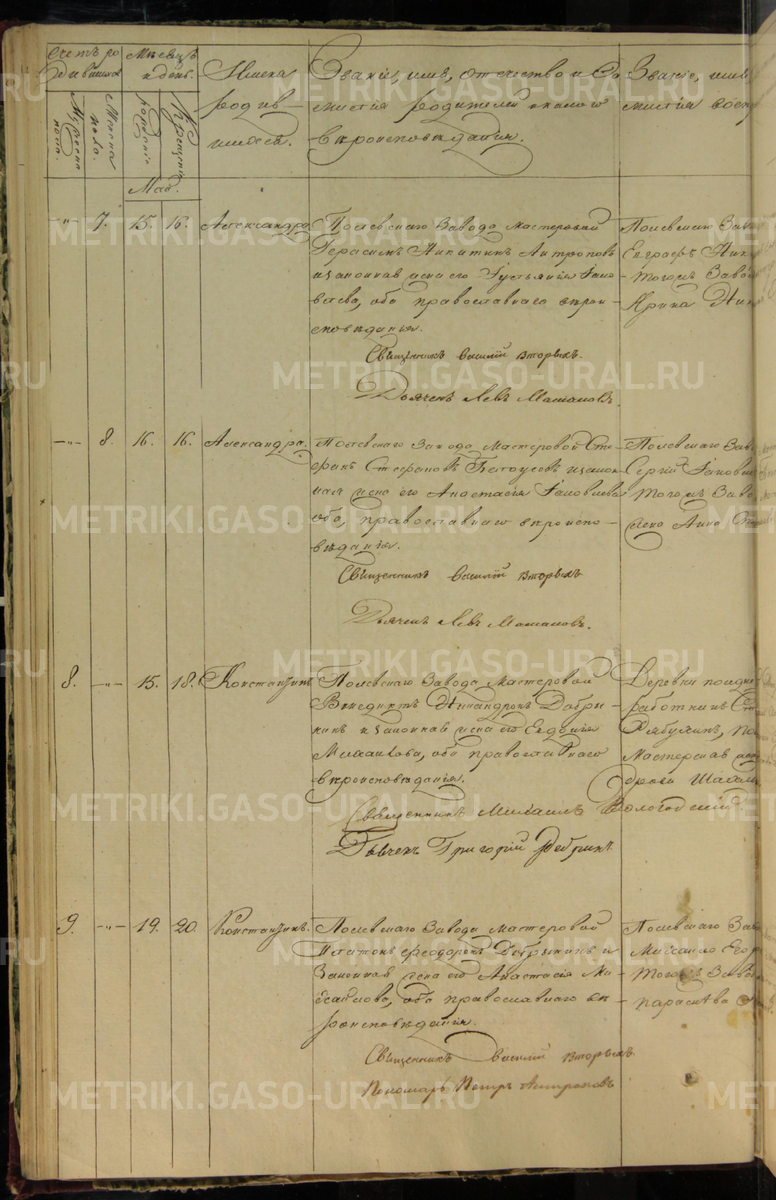 Счетъ ро
дившихся
Мѣсяцъ
и день.
Имена
родив-
шихся.
Званіе, имя, отчество и фа
милія родителей и какого
вѣроисповѣданія.
Званіе, имя
милія восп
Мужеска
пола.
Женска
пола.
рожденіе
Крещеніе
Май.
-"- 7. 15. 16. Александра
Полевскаго Завода мастеровой
Герасимъ Никитинъ Антроповъ
и законная жена его Устьянія Яко
влева, оба православнаго вѣрои-
сповѣданія.
Священникъ Василій Вторыхъ.
Дьячекъ Левъ Мальгановъ.
Полевскаго Зав
Евграфъ Ник
Тогожъ Заво
Ирина Ник
-"- 8. 16. 16. Александра.
Полевскаго Завода Мастеровой Сте
фанъ Стефановъ Бѣлоусовъ и закон
ная жена его Анастасія Яковлева
оба, православнаго вѣроиспо-
вѣданія.
Священникъ Василій Вторыхъ
Дьячекъ Левъ Мальгановъ.
Полевскаго Заво
Сергій Яковле
Тогожъ Заво
жена Анна Ст
8. -"- 15. 18. Константинъ
Полевскаго Завода Мастеровой
Венедиктъ Никандровъ Добры
нинъ и законная жена его Евдокія
Михайлова, оба православнаго
вѣроисповѣданія.
Священникъ Михаилъ Вологодскій
Дьячекъ Григорій
Деревни
работникъ Ст
Рябухинъ, По
Мастерская
9. -"- 19. 20. Константинъ.
Полевскаго Завода мастеровой
Платонъ Феодоровъ Добрынинъ и
Законная жена его Анастасія Ми
хайлова, оба православнаго вѣ-
роисповѣданія.
Священникъ Василій Вторыхъ
Пономарь Петръ Антроповъ
Полевскаго Зав
Михаило Его
Тогожъ Заво
Параскева
METRIKI.GASO-URAL.RU